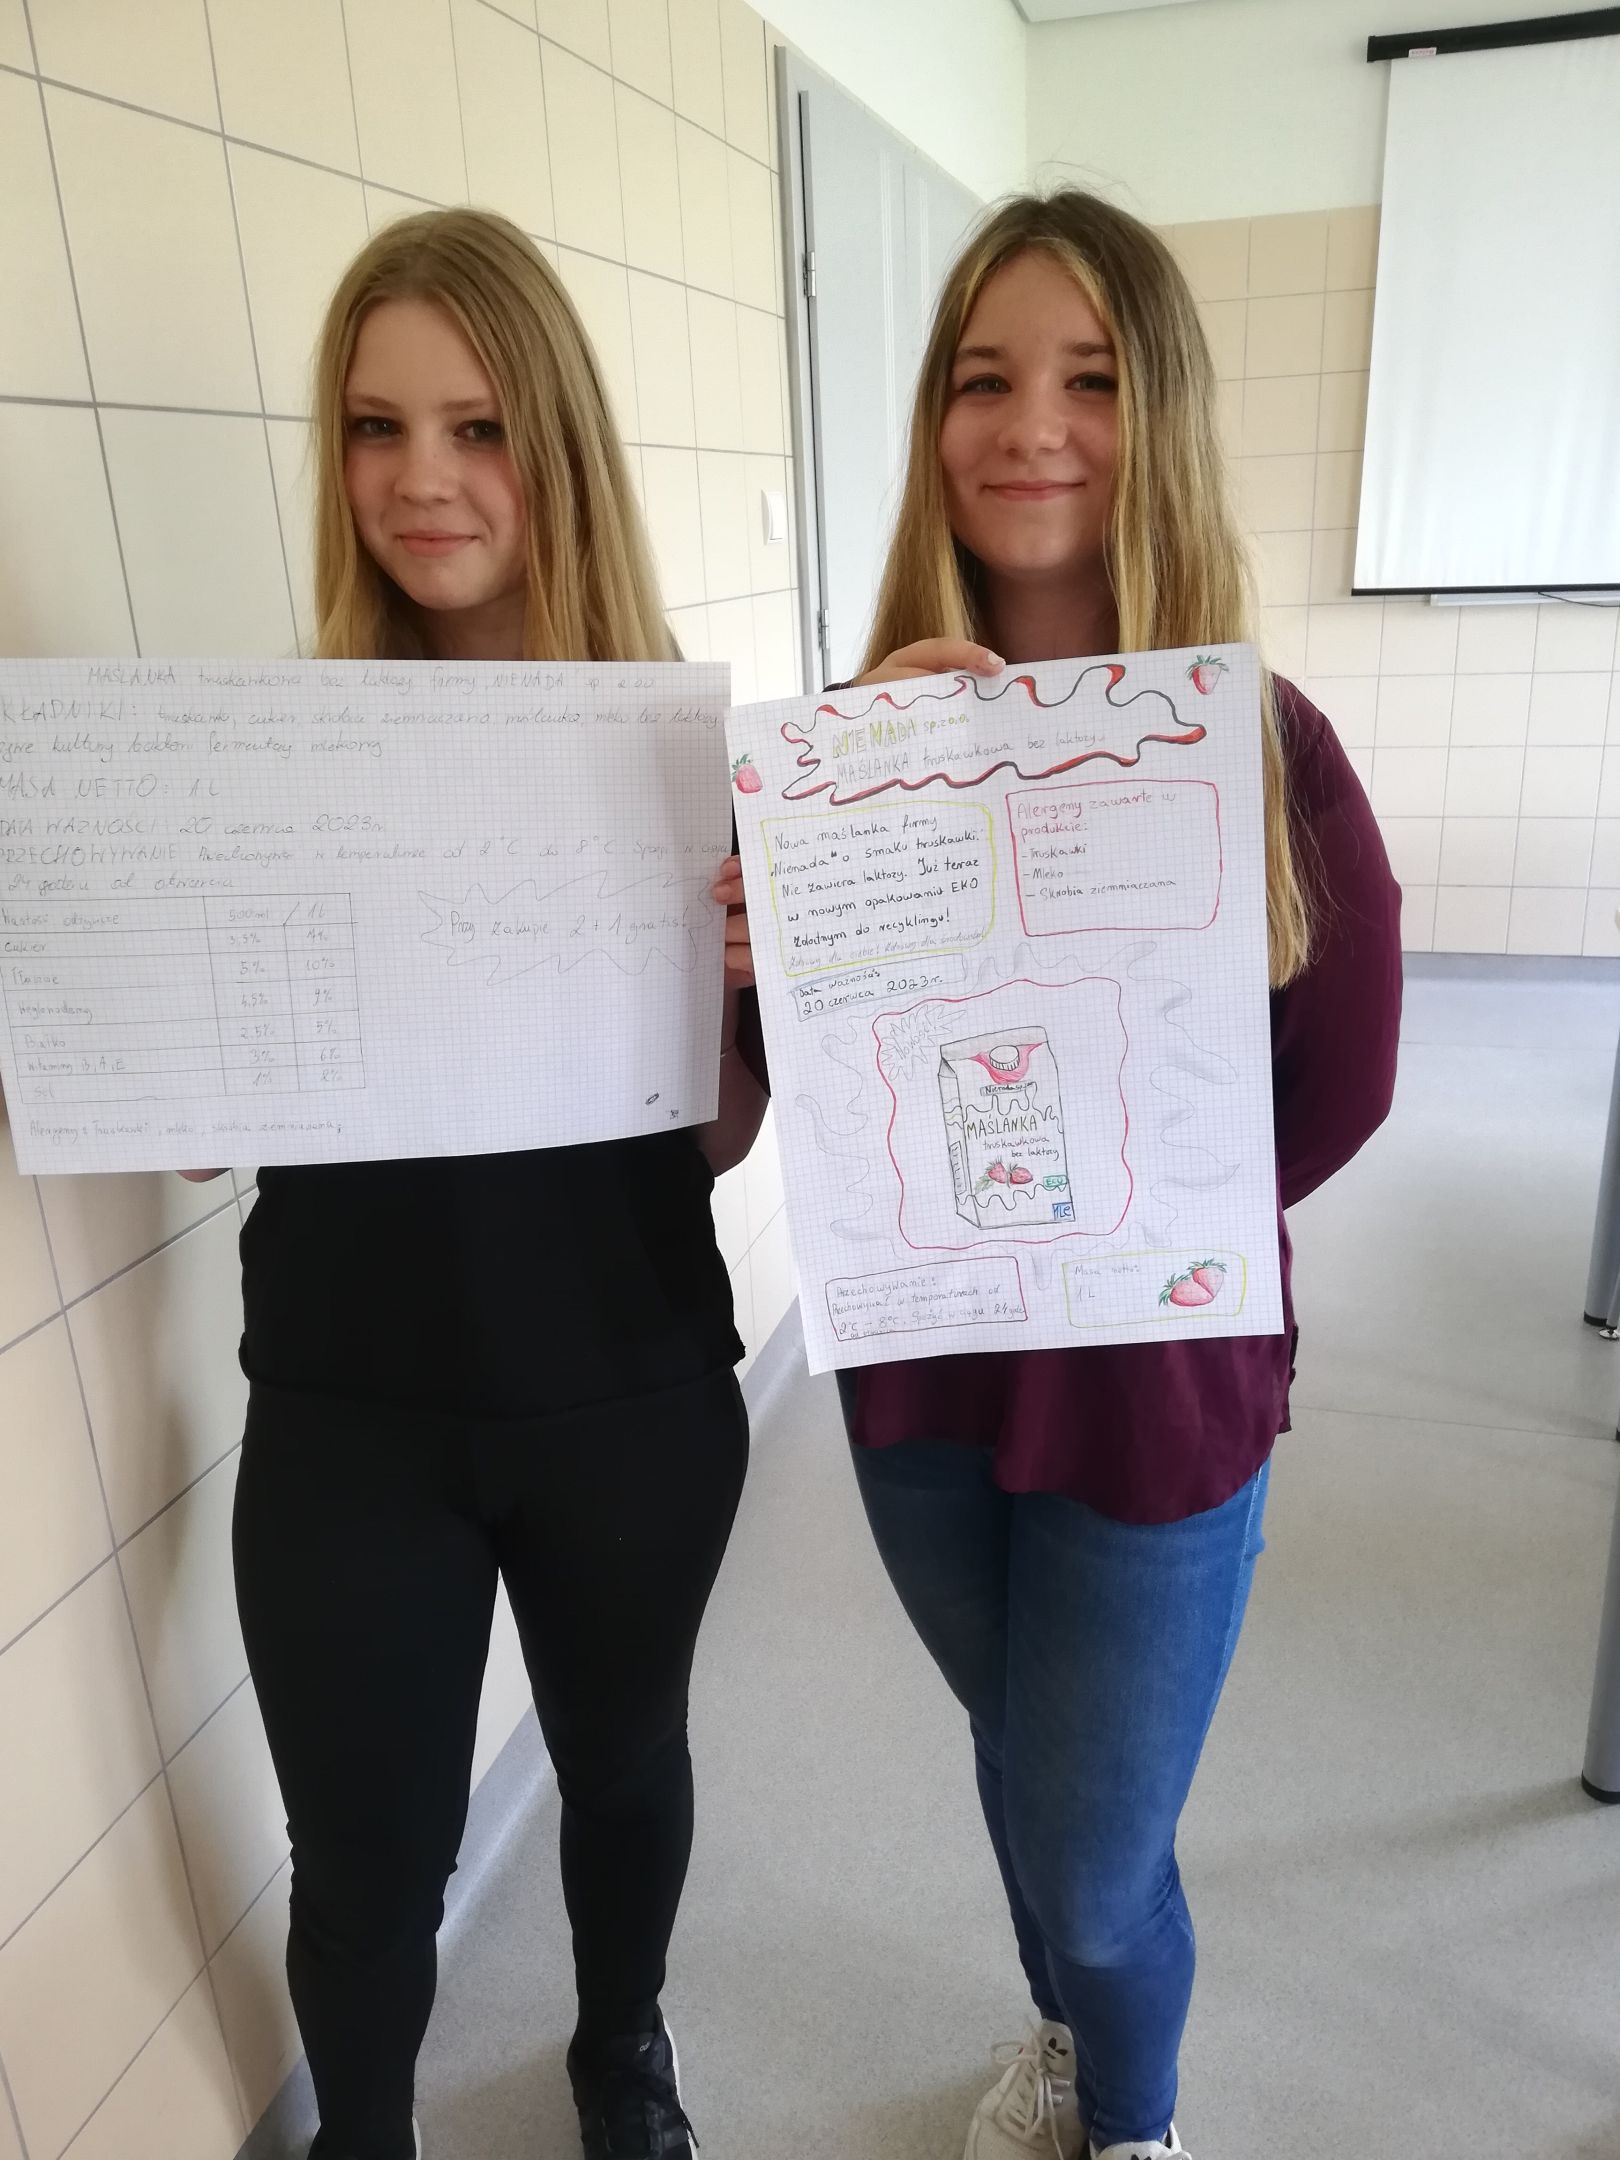 MAŚLANKA truskawkowa bez laktozy firmy "NIENADA" sp z oo
KŁADNIKI: truskawki, cukier, skrobia ziemniaczana, maślanka, mleko bez laktozy
żywe kultury bakterii fermentacji mlekowej
MASA NETTO: 1L
DATA WAŻNOŚCI: 20 czerwca 2023r.
PRZECHOWYWANIE: w temperaturze od 2°C do 8°C Spożyć w ciągu
24 godzin od otwarcia
Wartości odżywcze 500ml / 1L
Cukier 3,5% 7%
Tłuszcze 5% 10%
Węglowodany 4,5% 9%
Białko 2,5% 5%
Witaminy B, A, E 3% 6%
Sól 1% 2%
Przy zakupie 2 + 1 gratis!
Alergeny: Truskawki, mleko, skrobia ziemniaczana;
NIENADA sp.z o.o.
MAŚLANKA truskawkowa bez laktozy
Nowa maślanka firmy
„Nienada" o smaku truskawki.
Nie zawiera laktozy. Już teraz
w nowym opakowaniu EKO
zdatnym do recyklingu!
Zdrowy dla ciebie! Zdrowy dla środowiska
Alergeny zawarte w
produkcie:
- Truskawki
- Mleko
- Skrobia ziemniaczana
Data ważności:
20 czerwca 2023r.
Nowość
Nienada
MAŚLANKA
truskawkowa
bez laktozy
EKO
Przechowywanie:
Przechowywać w temperaturach od
2°C - 8°C. Spożyć w ciągu 24 godz
od otwarcia
Masa netto:
1L